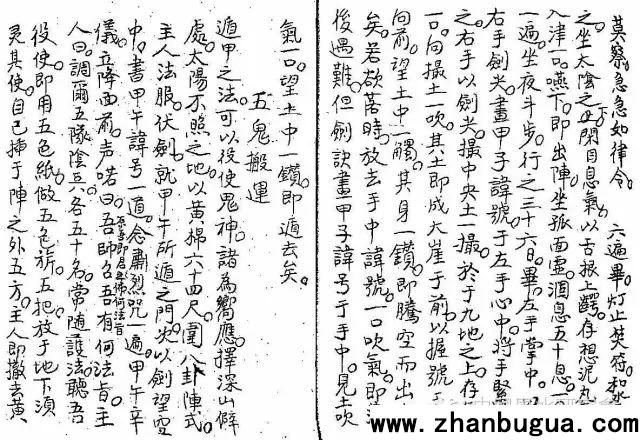 莫察急急如律令 六遍畢灯止焚符和水
入津一口嚥下即出陣坐孤面虛涸息五十息
之坐太陰之下閉目息氣以舌根上齶存想泥丸
一遍坐夜斗步行之三十六日畢左手掌中
右手劍尖畫甲子諱號于左手心中将手緊
之右手以劍尖撮中央土一撮於于九地之上存
一口向撮土一吹其土即成大崖于前以握號
向前望土中一觸其身一鑽即騰空而出
矣若欲落時放去手中諱號一口吹氣即
後遇難但劍訣畫甲子諱号于手中見土吹
氣一口望土中一鑽即遁去矣
五鬼搬運
遁甲之法可以役使鬼神諸為嚮應擇深山僻
處太陽不照之地以黃掃六十四尺圍八卦陣式
主人法服伏劍就甲午所遁之門尖以劍望空
中書甲午諱号一道念肅烈咒一遍甲午辛
儀立降面前声喏曰吾師名吾有何法旨主
人曰調爾五隊陰兵各五十名常随護法聽吾
役使即用五色紙做五色旂五把放于地下須
灵其使自己挿于陣之外五方主人即撤去黃
www.zhanbugua.com